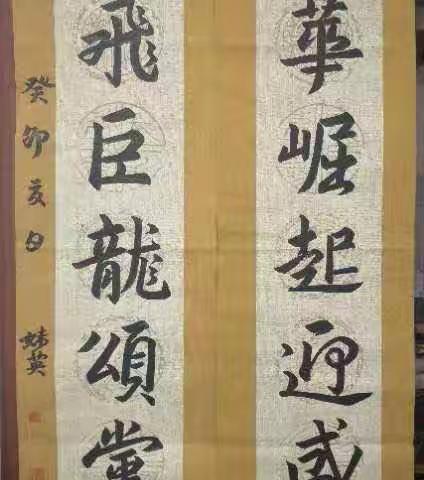 華崛起迎盛
飛巨龍頌黨
癸卯夏日
英